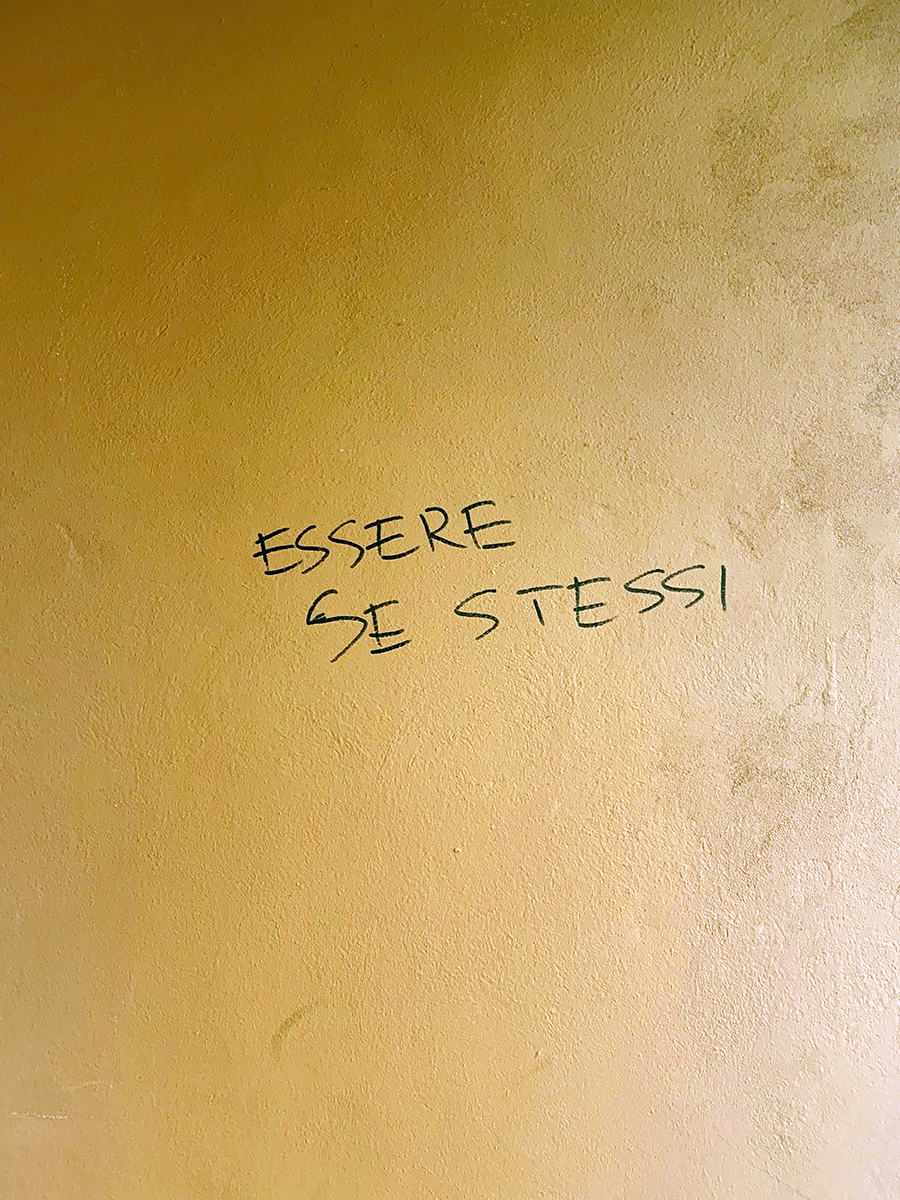 ESSERE
SE STESSI